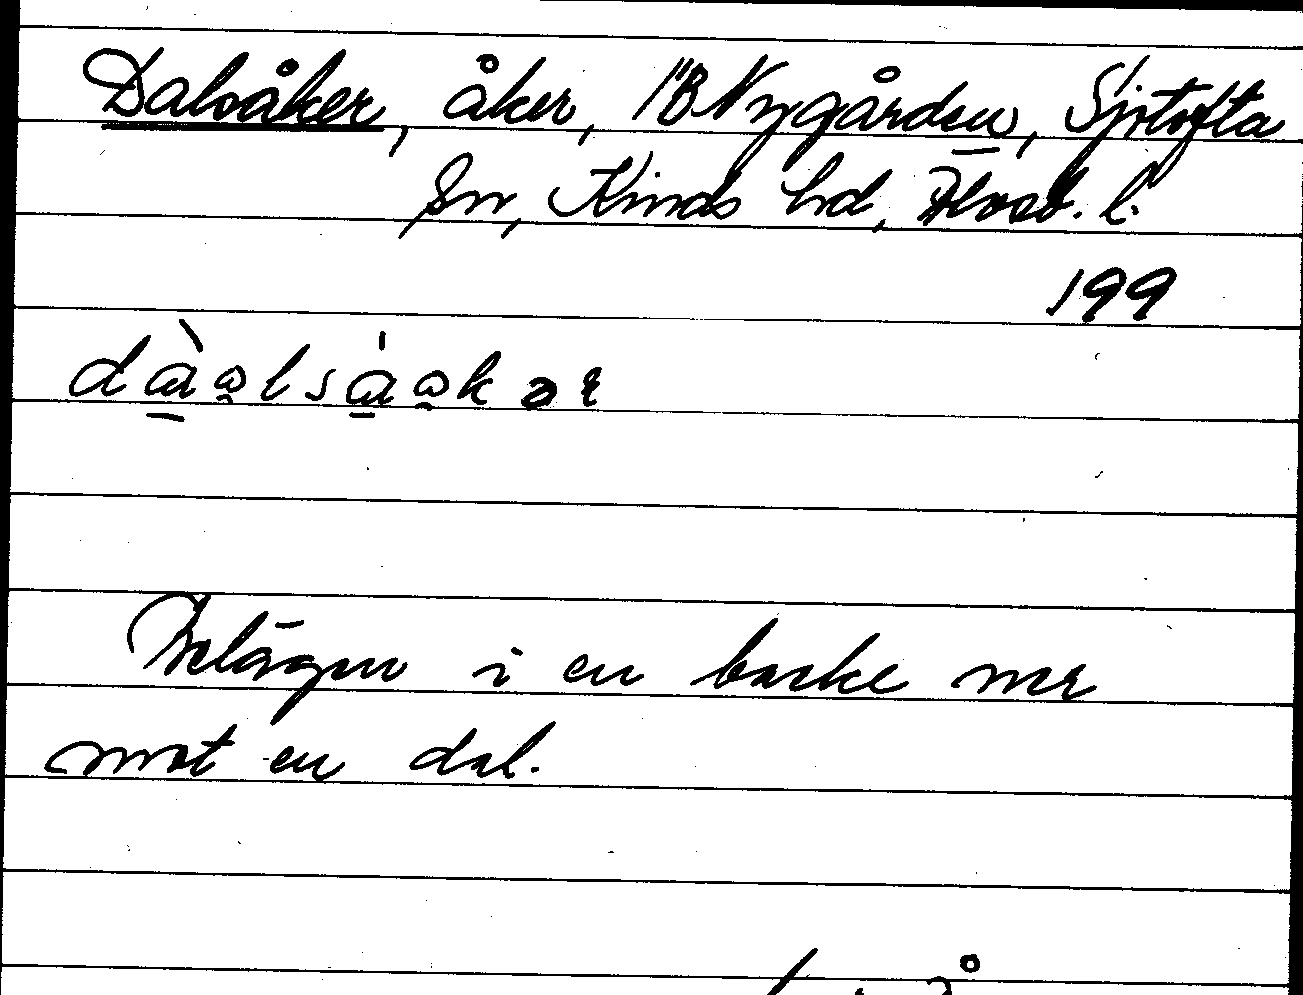 Dalsåker, åker, 1⁸B Nygården, Sjötofta
sn, Kinds hd, Älvsb. l.
199
Belägen i en backe ner
mot en dal.